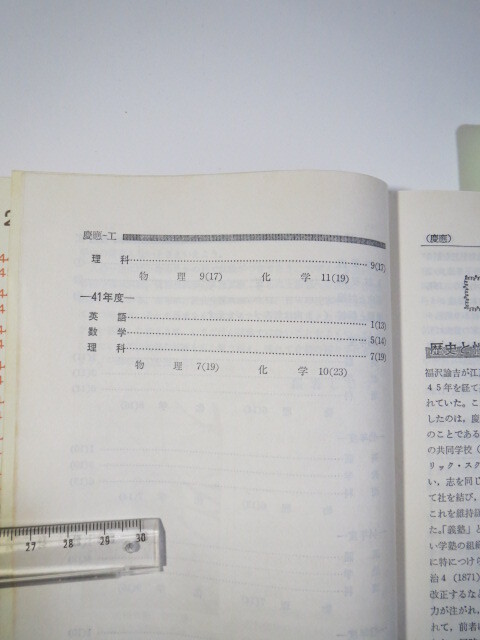 慶應-工
理 科 9(17)
物 理 9(17) 化 学 11(19)
—41年度—
英 語 1(13)
数 学 5(14)
理 科 7(19)
物 理 7(19) 化 学 10(23)
〈慶應〉
歴史と
福沢諭吉が江
45年を経て
れていた。こ
したのは，慶
のことである
の共同学校（
リック・スク
い，志を同じ
て社を結び，
これを維持
た。「義塾」と
い学塾の組
に特につけら
治4（1871）
改正するな
力が注がれ，
れて，前者
27 28 29 30